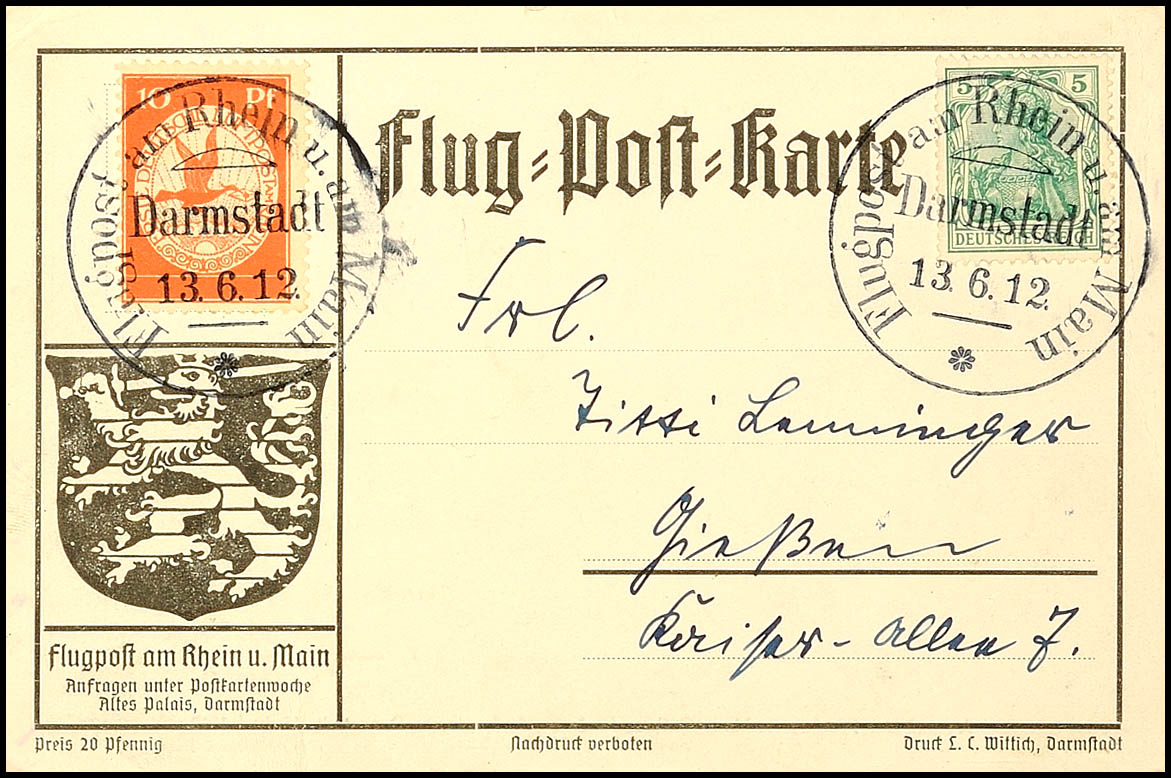 10 Pf
Flugpost am Rhein u. am Main
Darmstadt
13.6.12.
Flug-Post-Karte
5 5
DEUTSCHES REICH
Flugpost am Rhein u. am Main
Darmstadt
13.6.12.
Frl.
Titti Lenninger
Gießen
Kaiser-Allee 7.
Flugpost am Rhein u. Main
Anfragen unter Postkartenwoche
Altes Palais, Darmstadt
Preis 20 Pfennig
Nachdruck verboten
Druck L. C. Wittich, Darmstadt